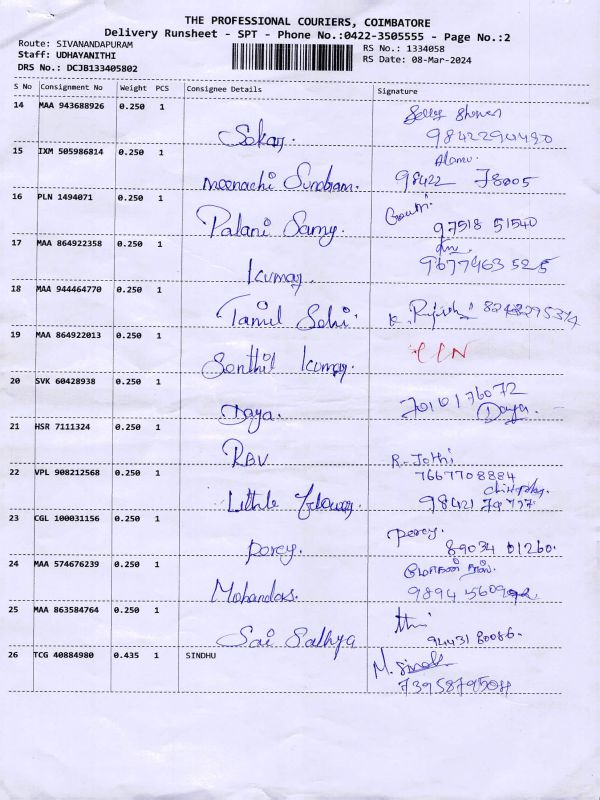 THE PROFESSIONAL COURIERS, COIMBATORE
Delivery Runsheet - SPT - Phone No.:0422-3505555 - Page No.:2
Route: SIVANANDAPURAM
RS No.: 1334058
Staff: UDHAYANITHI
RS Date: 08-Mar-2024
DRS No.: DCJB133405802
S No Consignment No Weight PCS Consignee Details Signature
14 MAA 943688926 0.250 1
15 IXM 505986814 0.250 1
Meenachi Sundram. 98422 78005
16 PLN 1494071 0.250 1
Palani Samy. 97518 51540
17 MAA 864922358 0.250 1
Kumar 9677463525
18 MAA 944464770 0.250 1
Tamil Selvi.
19 MAA 864922013 0.250 1
Senthil Kumar
20 SVK 60428938 0.250 1
7010176072
Daya. Daya.
21 HSR 7111324 0.250 1
RBV R. Jothi
7667708884
22 VPL 908212568 0.250 1
Little
23 CGL 100031156 0.250 1
percy.
percy. 89034 01260.
24 MAA 574676239 0.250 1
மோகன் தாஸ்.
Mohandas.
25 MAA 863584764 0.250 1
Sai Sathya 94431 80086.
26 TCG 40884980 0.435 1 SINDHU